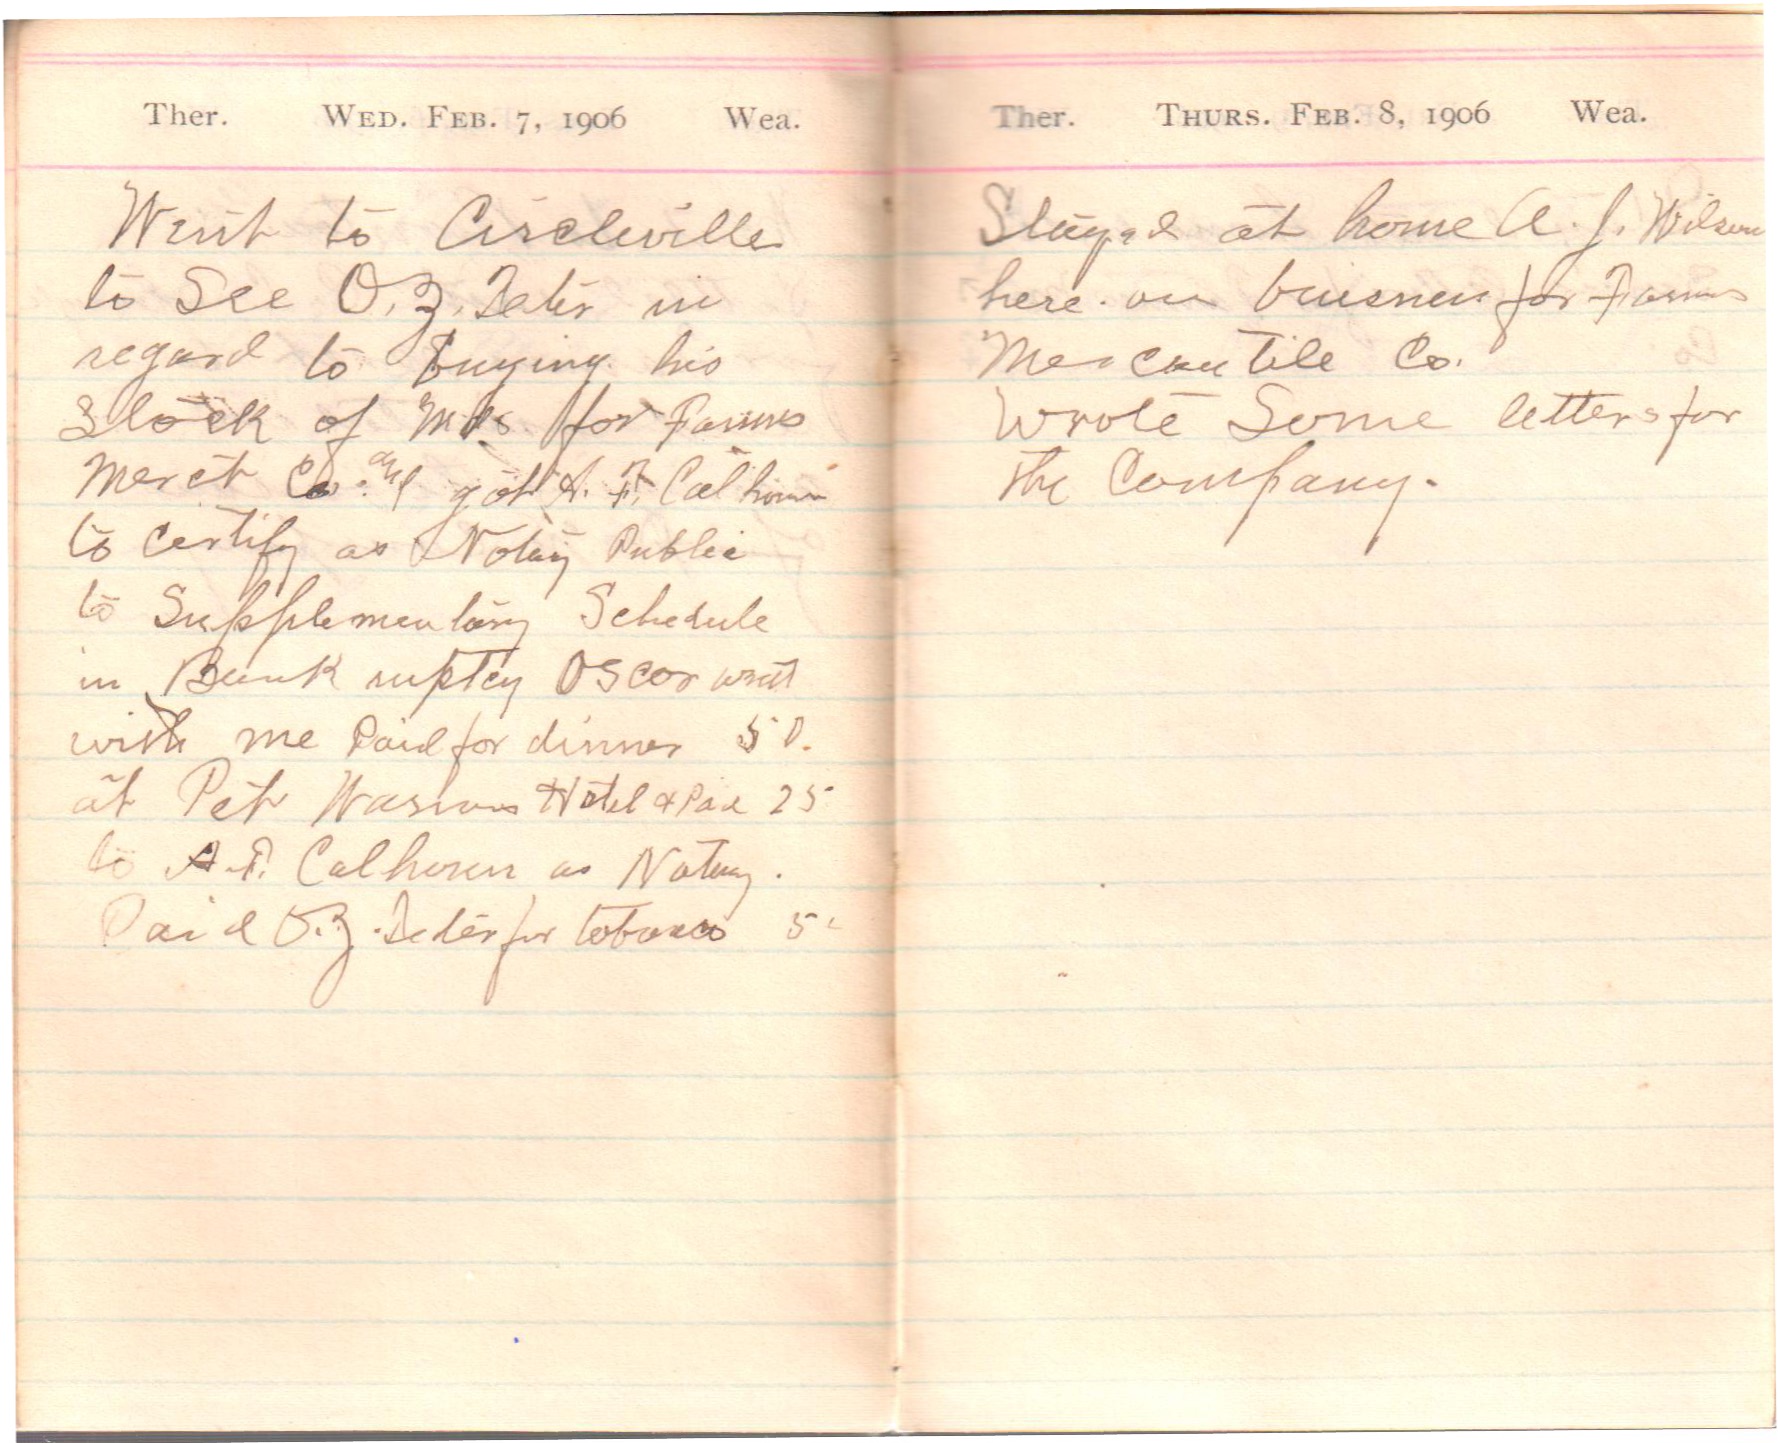 Ther. WED. FEB. 7, 1906 Wea.
Went to Circleville
to See O. Z. Teter in
regard to buying his
Stock of Mds for Farmers
Merct Co. and got A. F. Calhoun
to certify as Notary Public
to Supplementary Schedule
in Bankruptcy Oscor went
with me Paid for dinner 50.
at Pet Hotel & Paid 25
to A. F. Calhoun as Notary.
Paid O. Z. Teter for tobacco 5
Ther. THURS. FEB. 8, 1906 Wea.
Stayed at home A. J. Wilson
here on buisness for Farmers
Mercantile Co.
Wrote Some letters for
the Company.